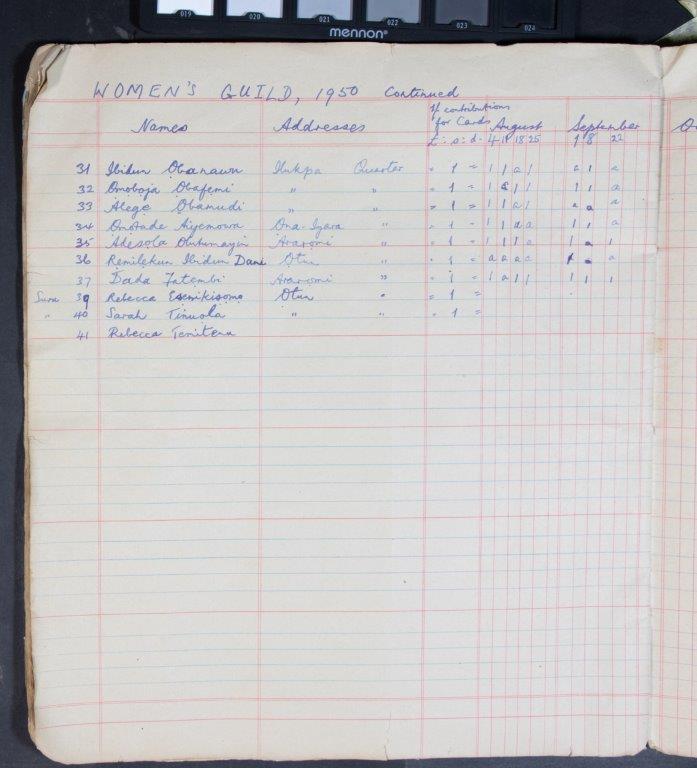 019 020 021 022 023 024
mennon
WOMEN'S GUILD, 1950 Continued
If contributions
for Cards August September
Names Addresses £ : s : d. 4 11 18 25 1 8 22
31 Ibidun Obanawu Ilukpa Quarter - 1 - 1 1 a 1 a 1 a
32 Omoboja Obafemi " " - 1 - 1 a 1 1 1 1 a
33 Alege Obamudi " " - 1 - 1 1 a 1 a a
34 Omotade Aiyemowa Ona-Igara " - 1 - 1 1 a a 1 1 a
35 Adesola Olubunmayin Araromi " - 1 - 1 1 1 a 1 1
36 Remilekun Ibidun Dani Otun " - 1 - a a a a a
37 Dada Fatembi Araromi " - 1 - 1 a 1 1 1 1 1
39 Rebecca Esemikisomo Otun " - 1 -
" 40 Sarah Tinuola " " - 1 -
41 Rebecca Temitera